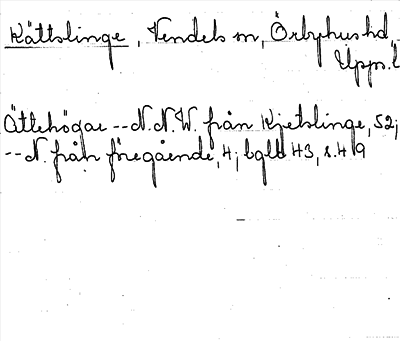 Kättslinge, Vendels sn, Örbyhus hd
Upps. l
Ättehögar -- N.N.W. från Kjetslinge, 52;
-- N. från föregående, 4; bgld 43, s. 49